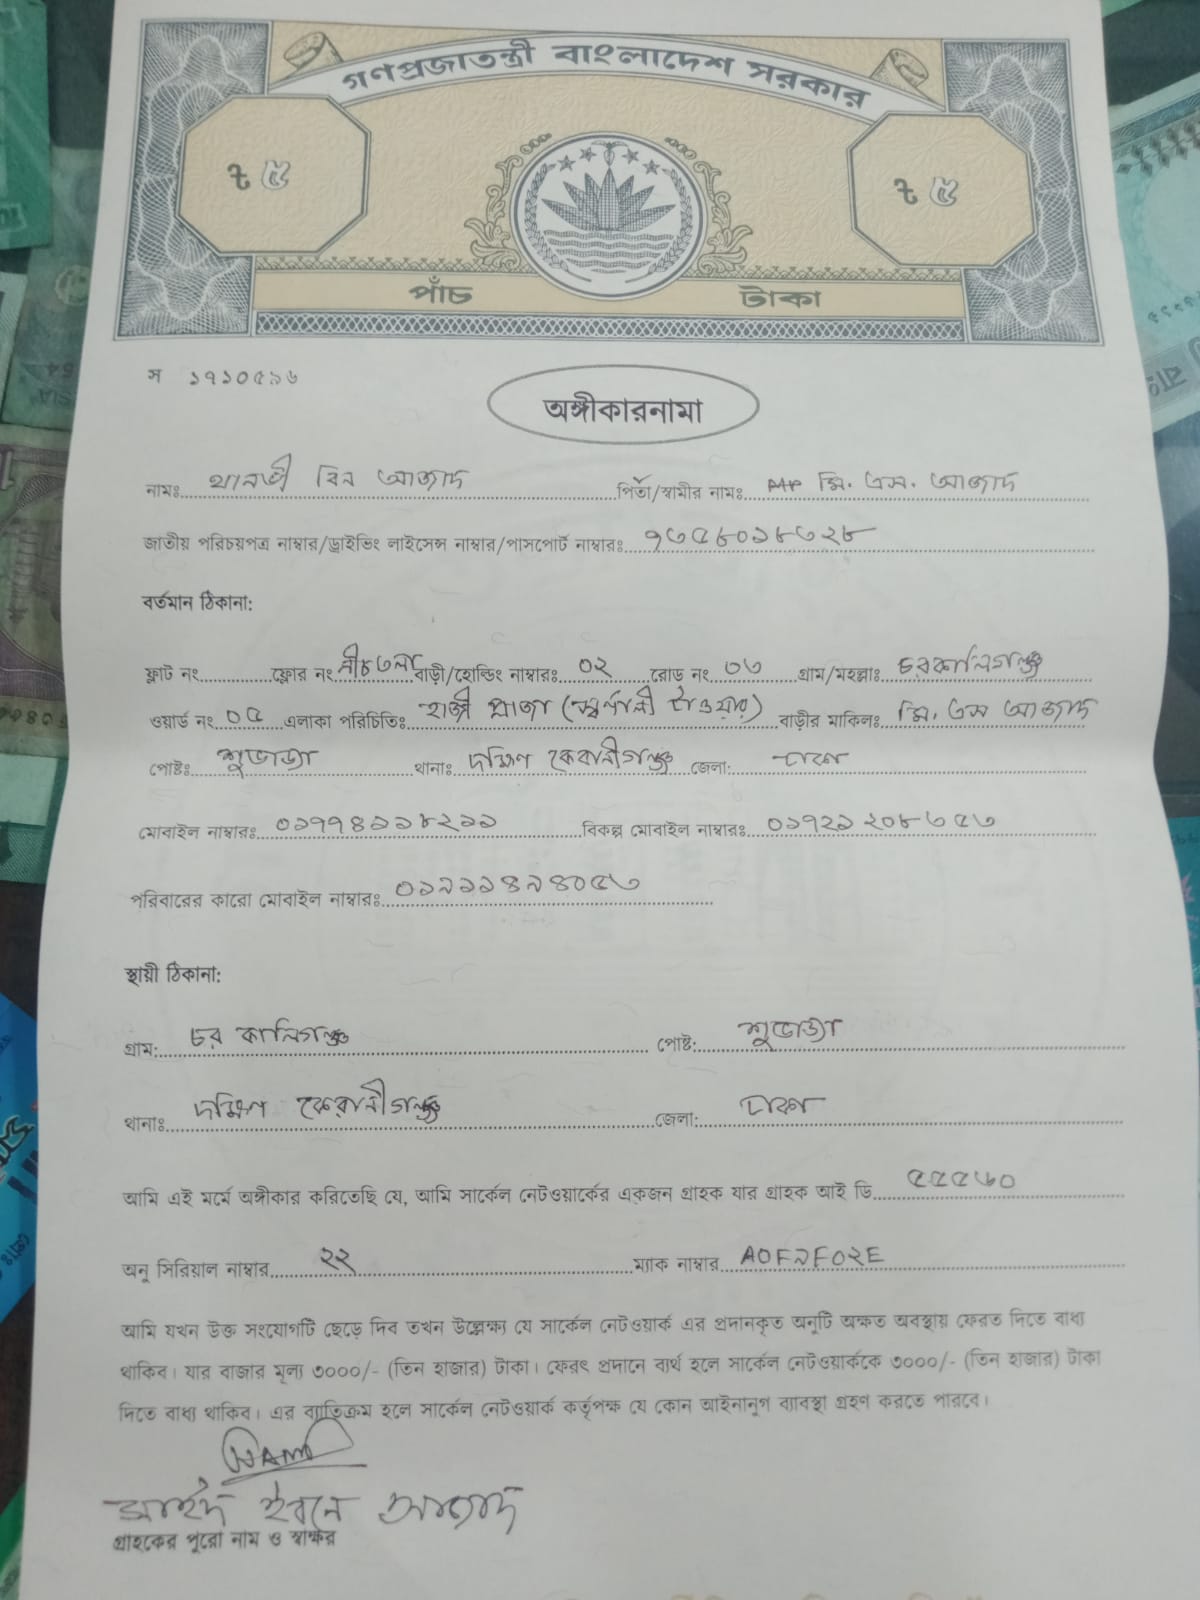 গণপ্রজাতন্ত্রী বাংলাদেশ সরকার
৳ ৫ ৳ ৫
পাঁচ টাকা
স ১৭১০৫৯৬
অঙ্গীকারনামা
নামঃ থানভী বিন আজাদ পিতা/স্বামীর নামঃ মি. এস. আজাদ
জাতীয় পরিচয়পত্র নাম্বার/ড্রাইভিং লাইসেন্স নাম্বার/পাসপোর্ট নাম্বারঃ
বর্তমান ঠিকানা:
ফ্লাট নং ফ্লোর নং নীচতলা বাড়ী/হোল্ডিং নাম্বারঃ ০২ রোড নং ০৩ গ্রাম/মহল্লাঃ চরকালিগঞ্জ
ওয়ার্ড নং ০৫ এলাকা পরিচিতিঃ হাজী প্লাজা (স্বর্নালী টাওয়ার) বাড়ীর মাকিলঃ মি. এস আজাদ
পোষ্টঃ শুভাঢ্যা থানাঃ দক্ষিণ কেরানীগঞ্জ জেলা: ঢাকা
মোবাইল নাম্বারঃ ০১৭৭৪১১৮২১১ বিকল্প মোবাইল নাম্বারঃ ০১৭২১২০৮৬৫৩
পরিবারের কারো মোবাইল নাম্বারঃ ০১৯১১৪৯৪০৫৩
স্থায়ী ঠিকানা:
গ্রাম: চর কালিগঞ্জ পোষ্ট: শুভাঢ্যা
থানাঃ দক্ষিণ কেরানীগঞ্জ জেলা: ঢাকা
আমি এই মর্মে অঙ্গীকার করিতেছি যে, আমি সার্কেল নেটওয়ার্কের একজন গ্রাহক যার গ্রাহক আই ডি ৫৫৫৬০
অনু সিরিয়াল নাম্বার ২২ ম্যাক নাম্বার A0F৯F0২E
আমি যখন উক্ত সংযোগটি ছেড়ে দিব তখন উল্লেক্ষ্য যে সার্কেল নেটওয়ার্ক এর প্রদানকৃত অনুটি অক্ষত অবস্থায় ফেরত দিতে বাধ্য
থাকিব। যার বাজার মূল্য ৩০০০/- (তিন হাজার) টাকা। ফেরৎ প্রদানে ব্যর্থ হলে সার্কেল নেটওয়ার্ককে ৩০০০/- (তিন হাজার) টাকা
দিতে বাধ্য থাকিব। এর ব্যতিক্রম হলে সার্কেল নেটওয়ার্ক কর্তৃপক্ষ যে কোন আইনানুগ ব্যাবস্থা গ্রহণ করতে পারবে।
ইবনে আজাদ
গ্রাহকের পুরো নাম ও স্বাক্ষর